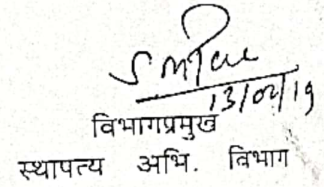 13/02/19
विभागप्रमुख
स्थापत्य अभि. विभाग